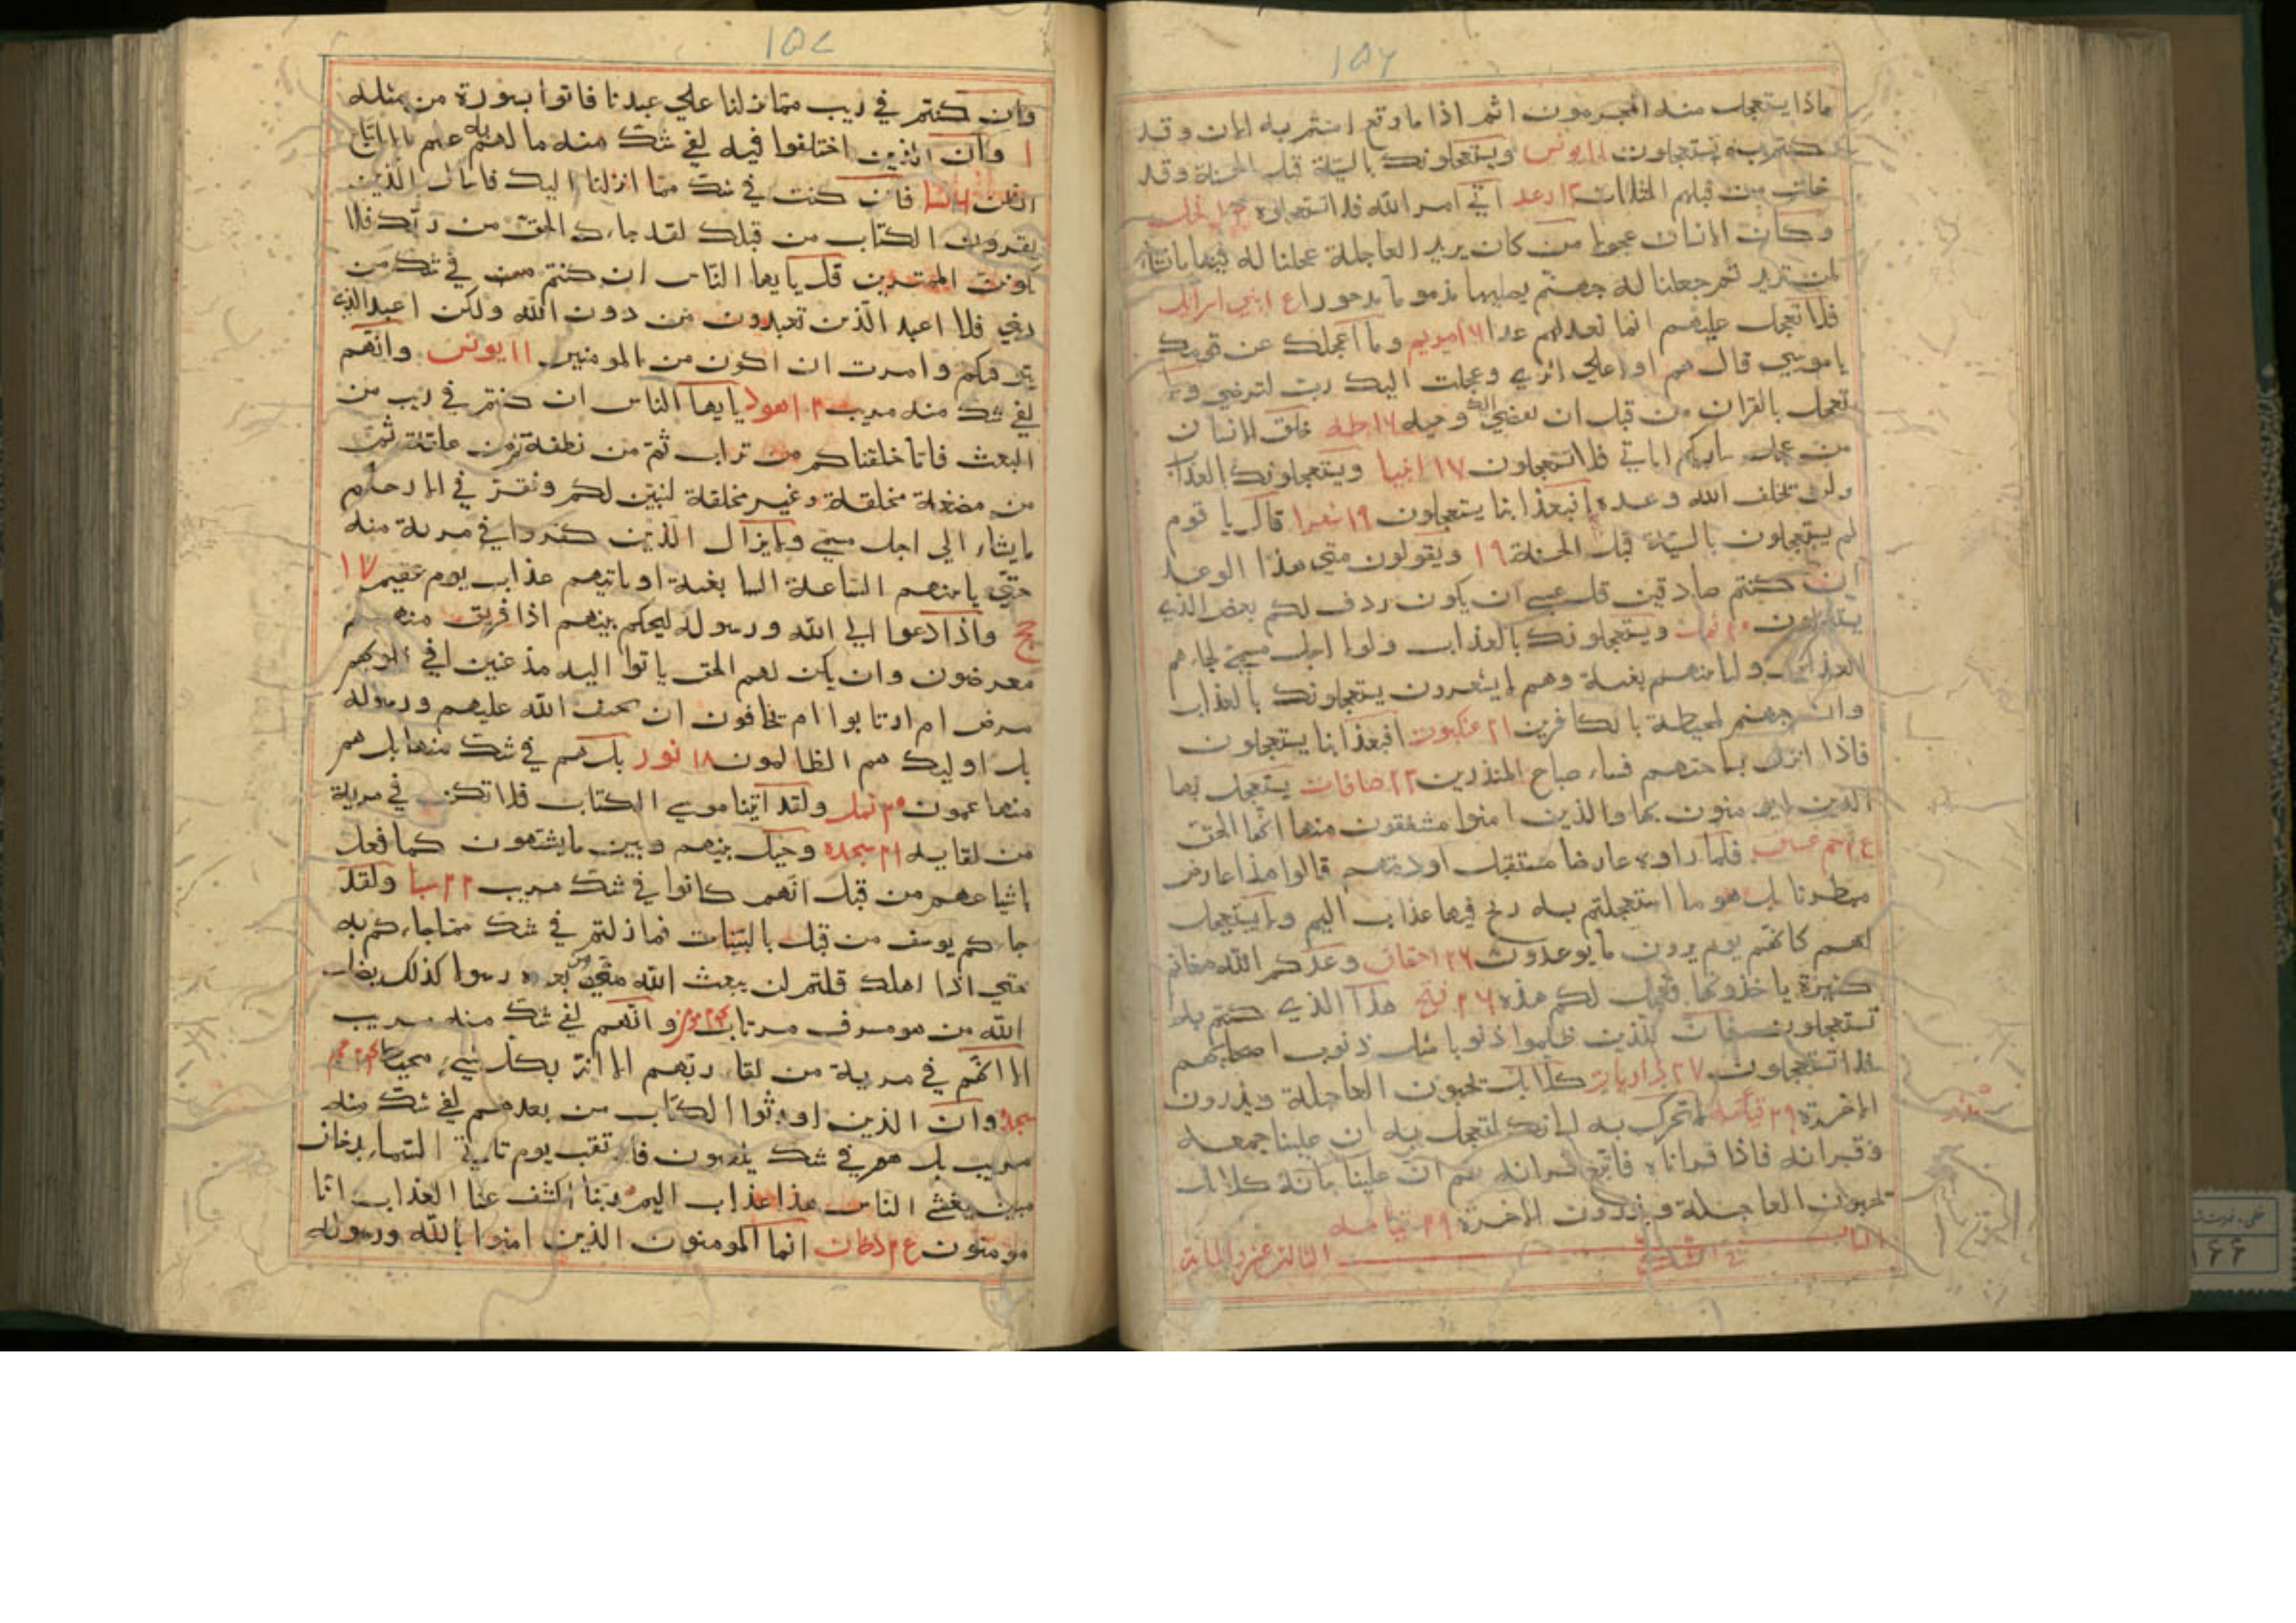 ١٥٦
ماذا يستعجل منه المجرمون اثم اذا ما وقع امنتم به الان وقد
كنتم به تستعجلون ١١ يونس ويستعجلونك بالسيئة قبل الحسنة وقد
خلت من قبلهم المثلات ١٣ رعد اتي امر الله فلا تستعجلوه نحل
وكان الانسان عجولا من كان يريد العاجلة عجلنا له فيها ما نشاء
لمن نريد ثم جعلنا له جهنم يصليها مذموما مدحورا بني اسرائيل
فلا تعجل عليهم انما نعد لهم عدا ١٦ مريم وما اعجلك عن قومك
يا موسي قال هم اولا علي اثري وعجلت اليك رب لترضي ولا
تعجل بالقران من قبل ان يقضي اليك وحيه ١٦ طه خلق الانسان
من عجل ساريكم اياتي فلا تستعجلون ١٧ انبيا ويستعجلونك بالعذاب
ولن يخلف الله وعده افبعذابنا يستعجلون ١٩ شعرا قال يا قوم
لم يستعجلون بالسيئة قبل الحسنة ١٩ ويقولون متي هذا الوعد
ان كنتم صادقين قل عسي ان يكون ردف لكم بعض الذي
يستعجلون ٢٠ نمل ويستعجلونك بالعذاب ولولا اجل مسمي لجاءهم
العذاب ولياتينهم بغتة وهم لا يشعرون يستعجلونك بالعذاب
وان جهنم لمحيطة بالكافرين ٢١ عنكبوت افبعذابنا يستعجلون
فاذا انزل بساحتهم فساء صباح المنذرين ٢٣ صافات يستعجل بها
الذين لا يومنون بها والذين امنوا مشفقون منها انها الحق
فلما راوه عارضا مستقبل اوديتهم قالوا هذا عارض
ممطرنا بل هو ما استعجلتم به ريح فيها عذاب اليم ولا يستعجل
لهم كانهم يوم يرون ما يوعدون ٢٦ احقاف وعدكم الله مغانم
كثيرة ياخذونها فعجل لكم هذه ٢٦ فتح هذا الذي كنتم به
تستعجلون فان للذين ظلموا ذنوبا مثل ذنوب اصحابهم
فلا تستعجلون ٢٧ ذاريات كلا بل تحبون العاجلة ويذرون
الاخرة ٢٩ قيامه لا تحرك به لسانك لتعجل به ان علينا جمعه
وقرانه فاذا قراناه فاتبع قرانه ثم ان علينا بيانه كلا بل
تحبون العاجلة ويذرون الاخرة ٢٩ قيامه
الباب الثالث عشر والمايه في الشك
١٥٧
وان كنتم في ريب مما نزلنا علي عبدنا فاتوا بسورة من مثله
١ وان الذين اختلفوا فيه لفي شك منه ما لهم به علم الا اتباع
الظن ٦ نسا فان كنت في شك مما انزلنا اليك فاسال الذين
يقرون الكتاب من قبلك لقد جاءك الحق من ربك فلا
تكونن الممترين قل يا يها الناس ان كنتم في شك من
ديني فلا اعبد الذين تعبدون من دون الله ولكن اعبد الذي
يتوفيكم وامرت ان اكون من المومنين ١١ يونس وانهم
لفي شك منه مريب ١٢ هود يا يها الناس ان كنتم في ريب من
البعث فانا خلقناكم من تراب ثم من نطفة ثم من علقة ثم
من مضغة مخلقة وغير مخلقة لنبين لكم ونقر في الارحام
ما يشاء الي اجل مسمي ولا يزال الذين كفروا في مرية منه
حتي ياتيهم الساعة بغتة او ياتيهم عذاب يوم عقيم ١٧
حج واذا دعوا الي الله ورسوله ليحكم بينهم اذا فريق منهم
معرضون وان يكن لهم الحق ياتوا اليه مذعنين افي قلوبهم
مرض ام ارتابوا ام يخافون ان يحيف الله عليهم ورسوله
بل اوليك هم الظالمون ١٨ نور بل هم في شك منها بل هم
منها عمون ٢٠ نمل ولقد اتينا موسي الكتاب فلا تكن في مرية
من لقايه ٢١ سجده وحيل بينهم وبين ما يشتهون كما فعل
باشياعهم من قبل انهم كانوا في شك مريب ٢٢ سبا ولقد
جاءكم يوسف من قبل بالبينات فما زلتم في شك مما جاءكم به
حتي اذا هلك قلتم لن يبعث الله من بعده رسولا كذلك يضل
الله من هو مسرف مرتاب وانهم لفي شك منه مريب
الا انهم في مرية من لقاء ربهم الا انه بكل شيء محيط
سجده وان الذين اورثوا الكتاب من بعدهم لفي شك منه
مريب بل هم في شك يلعبون فارتقب يوم تاتي السماء بدخان
مبين يغشي الناس هذا عذاب اليم ربنا اكشف عنا العذاب انا
مومنون دخان انما المومنون الذين امنوا بالله ورسوله